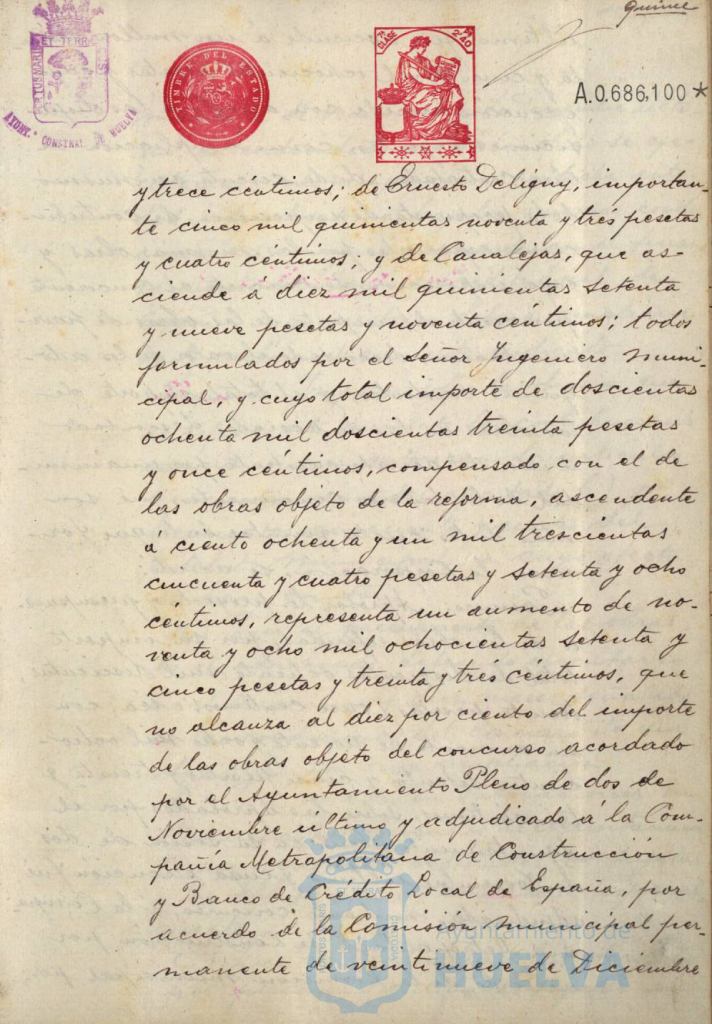 Quince
PORTUS MARIS ET TERRÆ CUSTODIA
AYUNT.º CONSTNAL. DE HUELVA
TIMBRE DEL ESTADO
7ª CLASE
2,40 P
A.0.686,100 *
y trece céntimos; de Ernesto Deligny, importan-
te cinco mil quinientas noventa y trés pesetas
y cuatro céntimos; y de Canalejas, que as-
ciende á diez mil quinientas setenta
y nueve pesetas y noventa céntimos; todos
formulados por el Señor Ingeniero muni-
cipal, y cuyo total importe de doscientas
ochenta mil doscientas treinta pesetas
y once céntimos, compensado con el de
las obras objeto de la reforma, ascendente
á ciento ochenta y un mil trescientas
cincuenta y cuatro pesetas y setenta y ocho
céntimos, representa un aumento de no-
venta y ocho mil ochocientas setenta y
cinco pesetas y treinta y trés céntimos, que
no alcanza al diez por ciento del importe
de las obras objeto del concurso acordado
por el Ayuntamiento Pleno de dos de
Noviembre último y adjudicado á la Com-
pañía Metropolitana de Construcción
y Banco de Crédito Local de España, por
acuerdo de la Comisión municipal per-
manente de veintinueve de Diciembre
Ayuntamiento de
HUELVA